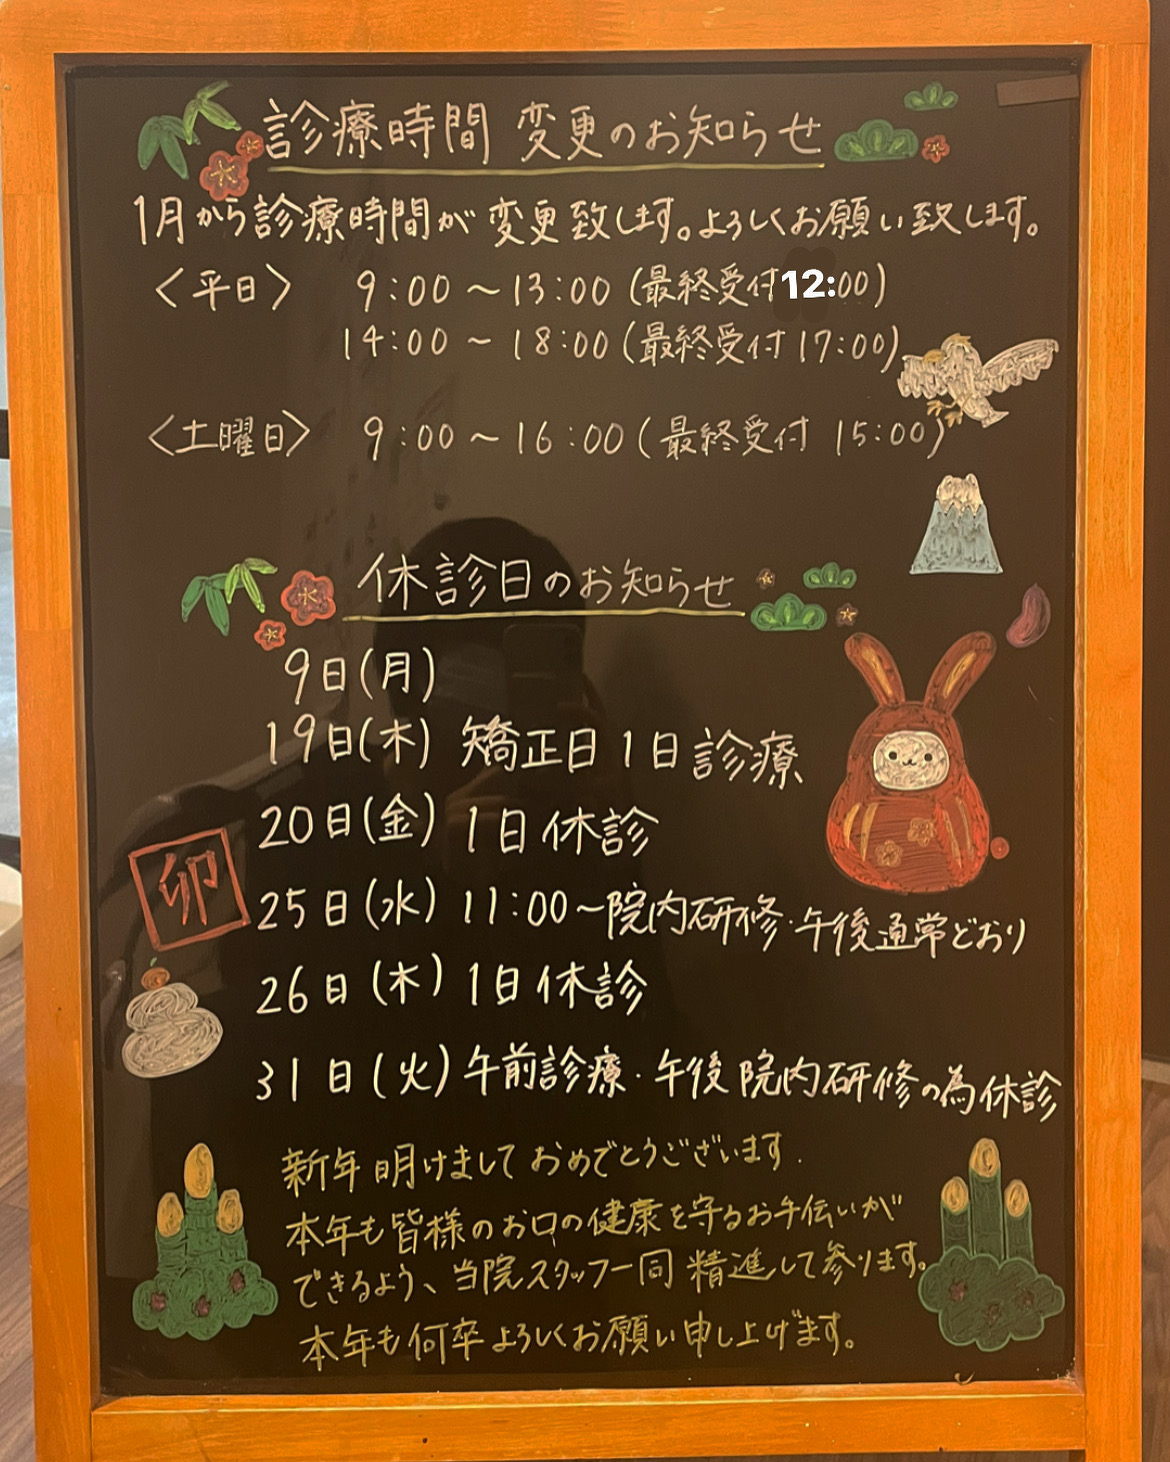 診療時間 変更のお知らせ
1月から診療時間が変更致します。よろしくお願い致します。
〈平日〉 9:00～13:00(最終受付12:00)
14:00～18:00(最終受付17:00)
〈土曜日〉 9:00～16:00(最終受付 15:00)
休診日のお知らせ
9日(月)
19日(木) 矯正日1日診療
20日(金) 1日休診
卯
25日(水) 11:00～院内研修・午後通常どおり
26日(木) 1日休診
31日(火)午前診療・午後院内研修の為休診
新年明けましておめでとうございます.
本年も皆様のお口の健康を守るお手伝いが
できるよう、当院スタッフ一同精進して参ります。
本年も何卒よろしくお願い申し上げます。